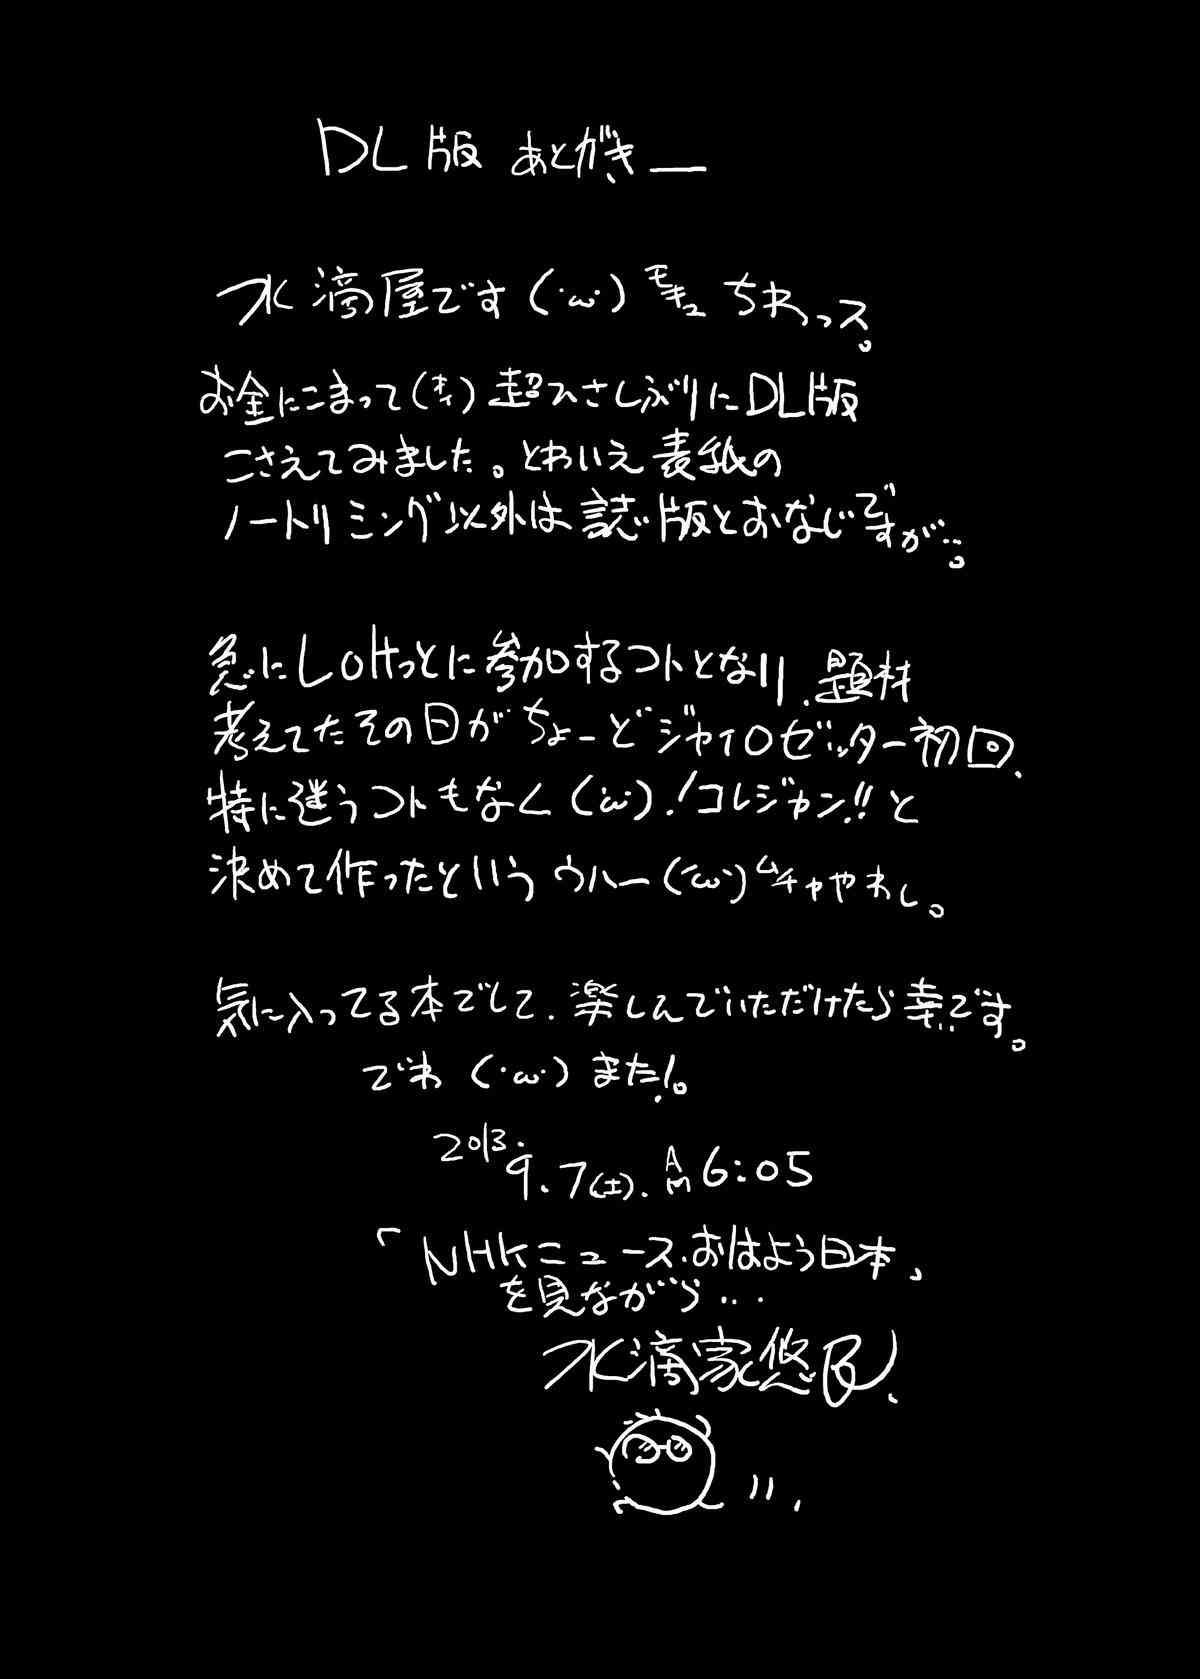 DL版 あとがきー
水滴屋です(・ω・)モキュ ちわっス。
お金にこまって(オイ)超ひさしぶりにDL版
こさえてみました。とわいえ表紙の
ノートリミング以外は誌版とおなじですが…。
急にLOHっとに参加するコトとなり、題材
考えてたその日がちょーどジャイロゼッター初回、
特に迷うコトもなく(・ω・)!コレジャン!!と
決めて作ったというウハー(´ω`)ムチャやわし。
気に入ってる本でして、楽しんでいただけたら幸です。
でわ(・ω・)また!。
2013.9.7(土).AM6:05
「NHKニュース、おはよう日本」
を見ながら…
水滴家悠